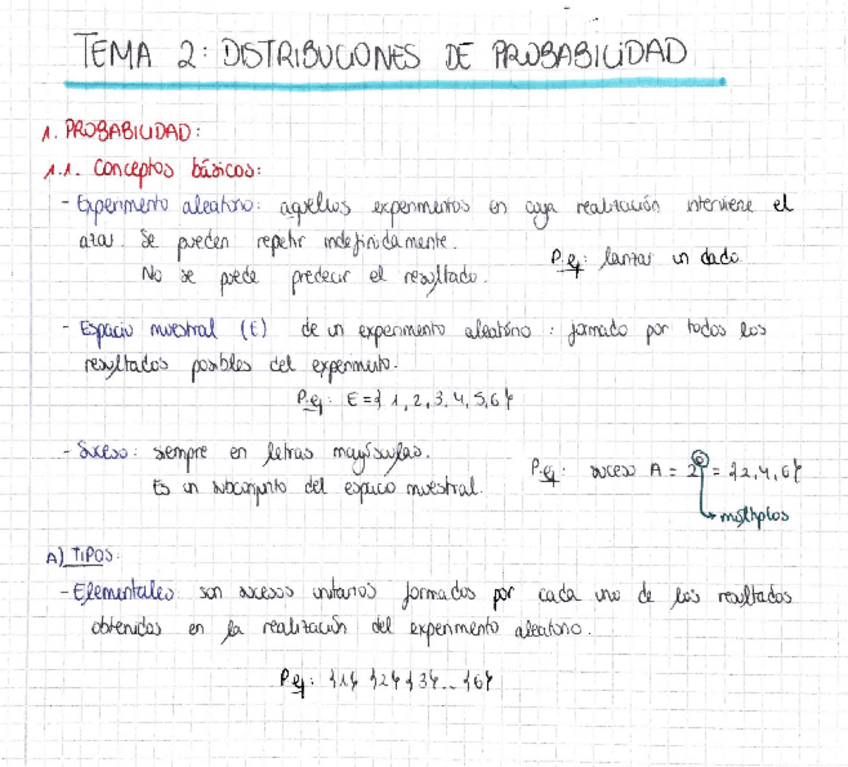 TEMA 2: DISTRIBUCIONES DE PROBABILIDAD
1. PROBABILIDAD:
1.1. Conceptos básicos:
- Experimento aleatorio: aquellos experimentos en cuya realización interviene el
azar. Se pueden repetir indefinidamente.
P.ej: lanzar un dado.
No se puede predecir el resultado.
- Espacio muestral (E) de un experimento aleatorio: formado por todos los
resultados posibles del experimento.
P.ej: E = {1, 2, 3, 4, 5, 6}
- Suceso: siempre en letras mayúsculas.
P.ej: suceso A = 2̊ = {2, 4, 6}
Es un subconjunto del espacio muestral.
múltiplos
A) TIPOS:
- Elementales: son sucesos unitarios formados por cada uno de los resultados
obtenidos en la realización del experimento aleatorio.
P.ej: {1} {2} {3} ... {6}